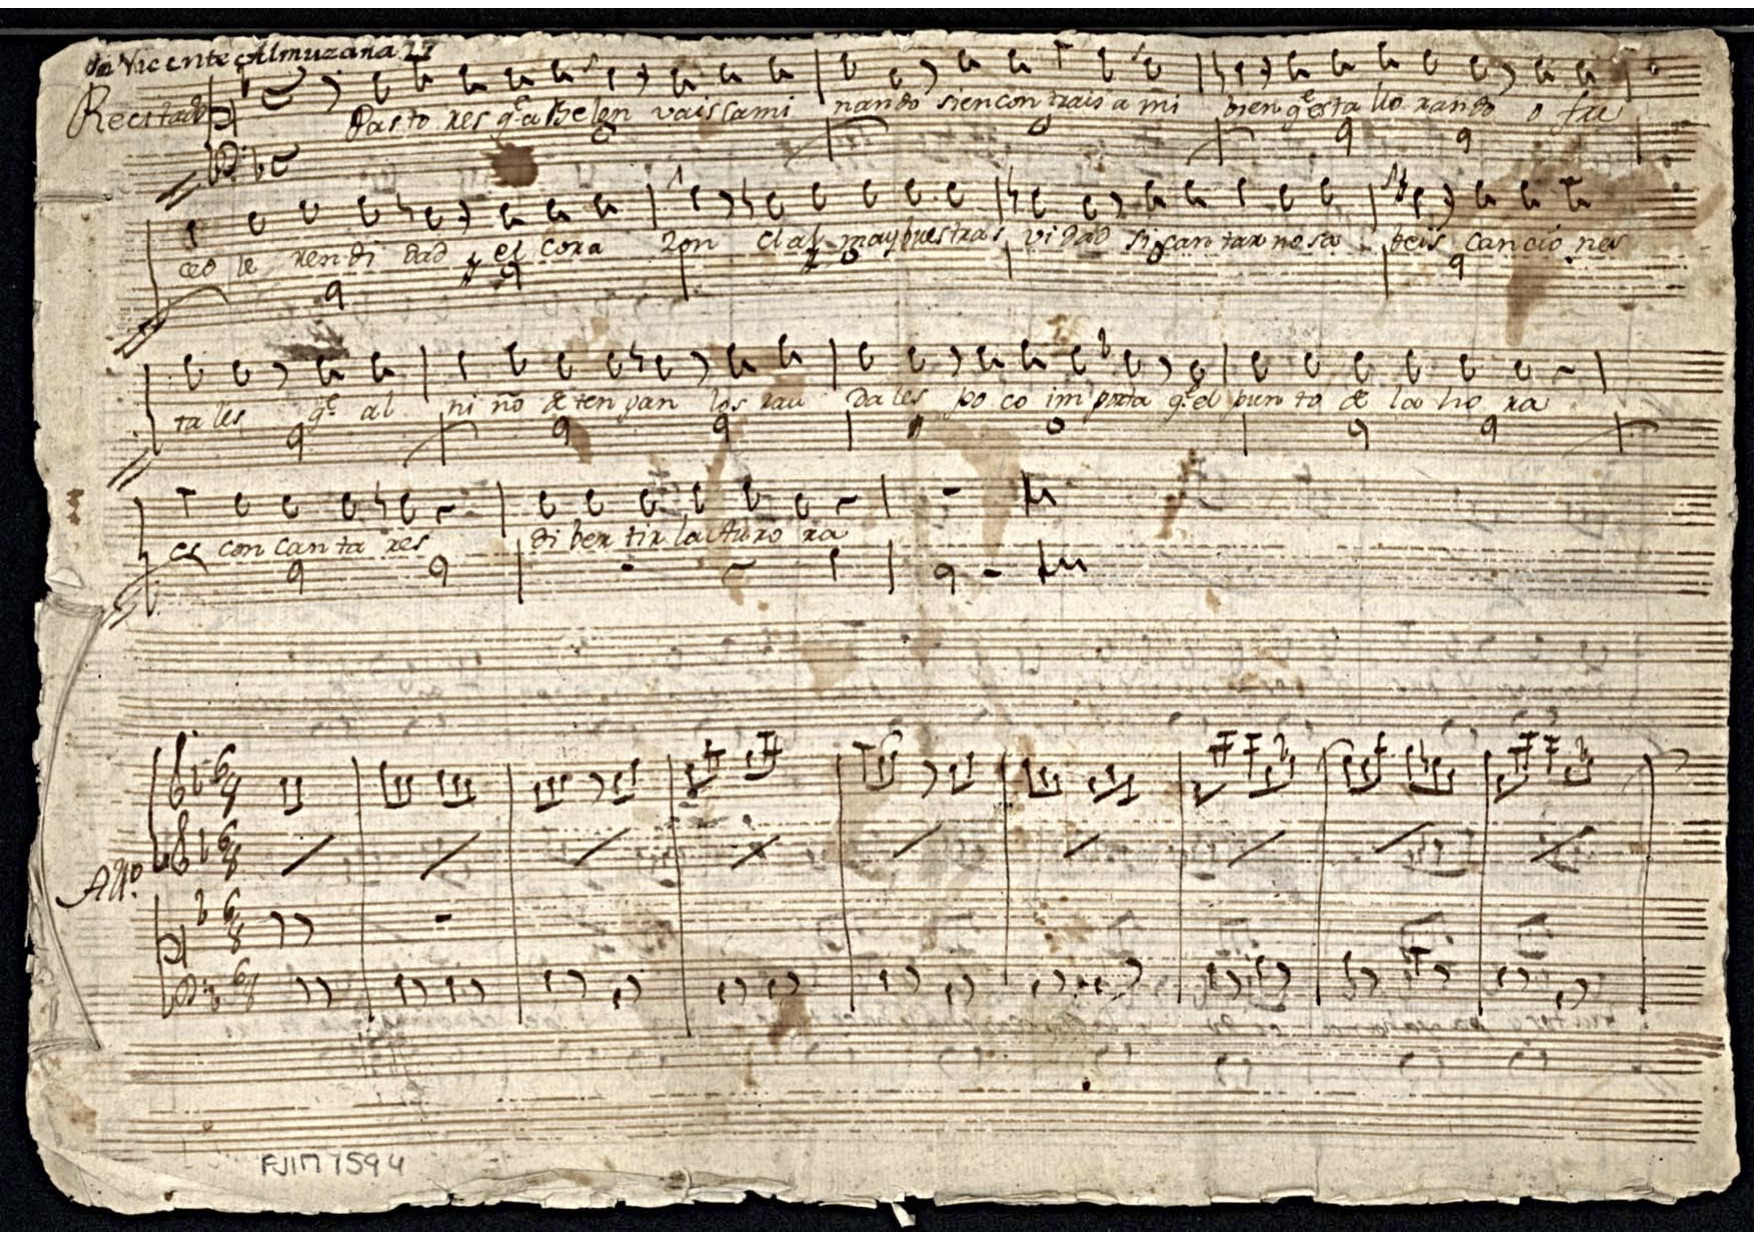 de Vicente Almuzana 27
Recitado
Pasto res q.e a Belen vais cami nando si encon trais a mi bien q.e esta llo rando o fre
ced le ren di dad y el cora zon y si cantar no sa beis cancio nes
tales q.e al ni ño de ten gan los rau dales po co im porta q.e el pun to de la ho ra
es con can ta res di ber tir la Auro ra
6/4
6/8
All.o
6/8
6/8
FJIM 1594